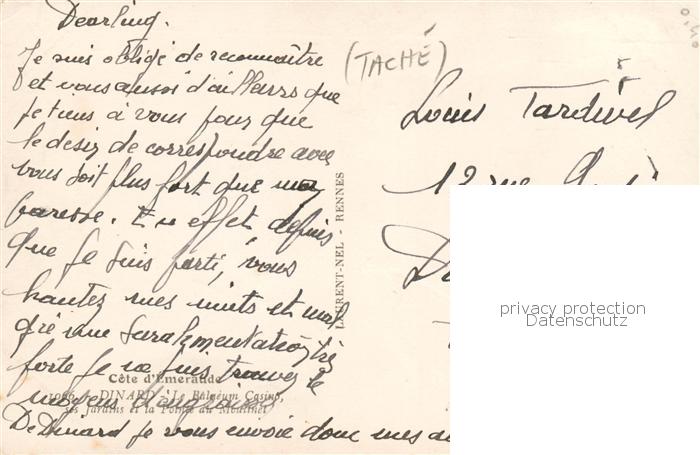 Dearling.
Je suis obligé de reconnaître
et vous aussi d'ailleurs que
je tiens à vous pour que
le desir de correspondre avec
vous soit plus fort que ma
paresse. En effet depuis
que je suis parti, vous
hantez mes nuits et mal
gré une suralimentation trè
forte je ne puis trouver le
moyen d'engraisser
De Dinard je vous envoie donc mes
(TACHÉ)
Louis Tardivel
12 rue
LAURENT-NEL - RENNES
Côte d'Emeraude
DINARD - Le Balnéum Casino,
ses Jardins et la Pointe du Moulinet
privacy protection
Datenschutz